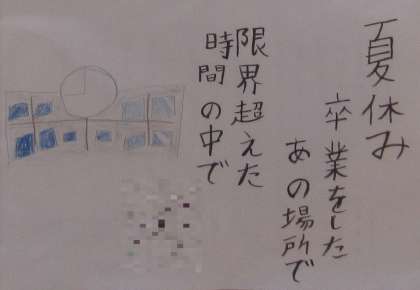 夏休み
卒業をした
あの場所で
限界超えた
時間の中で